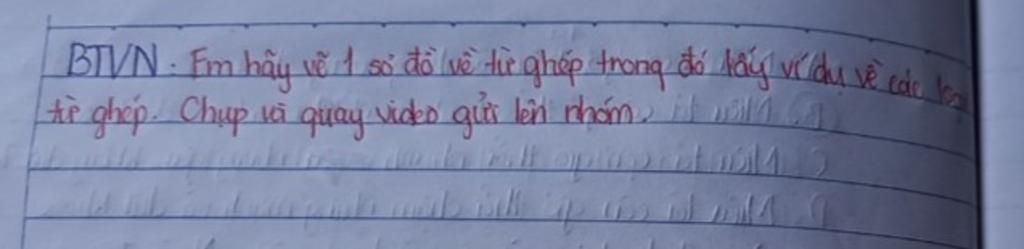 BTVN. Em hãy vẽ 1 sơ đồ về từ ghép trong đó lấy ví dụ về các
từ ghép. Chụp và quay video gửi lên nhóm.